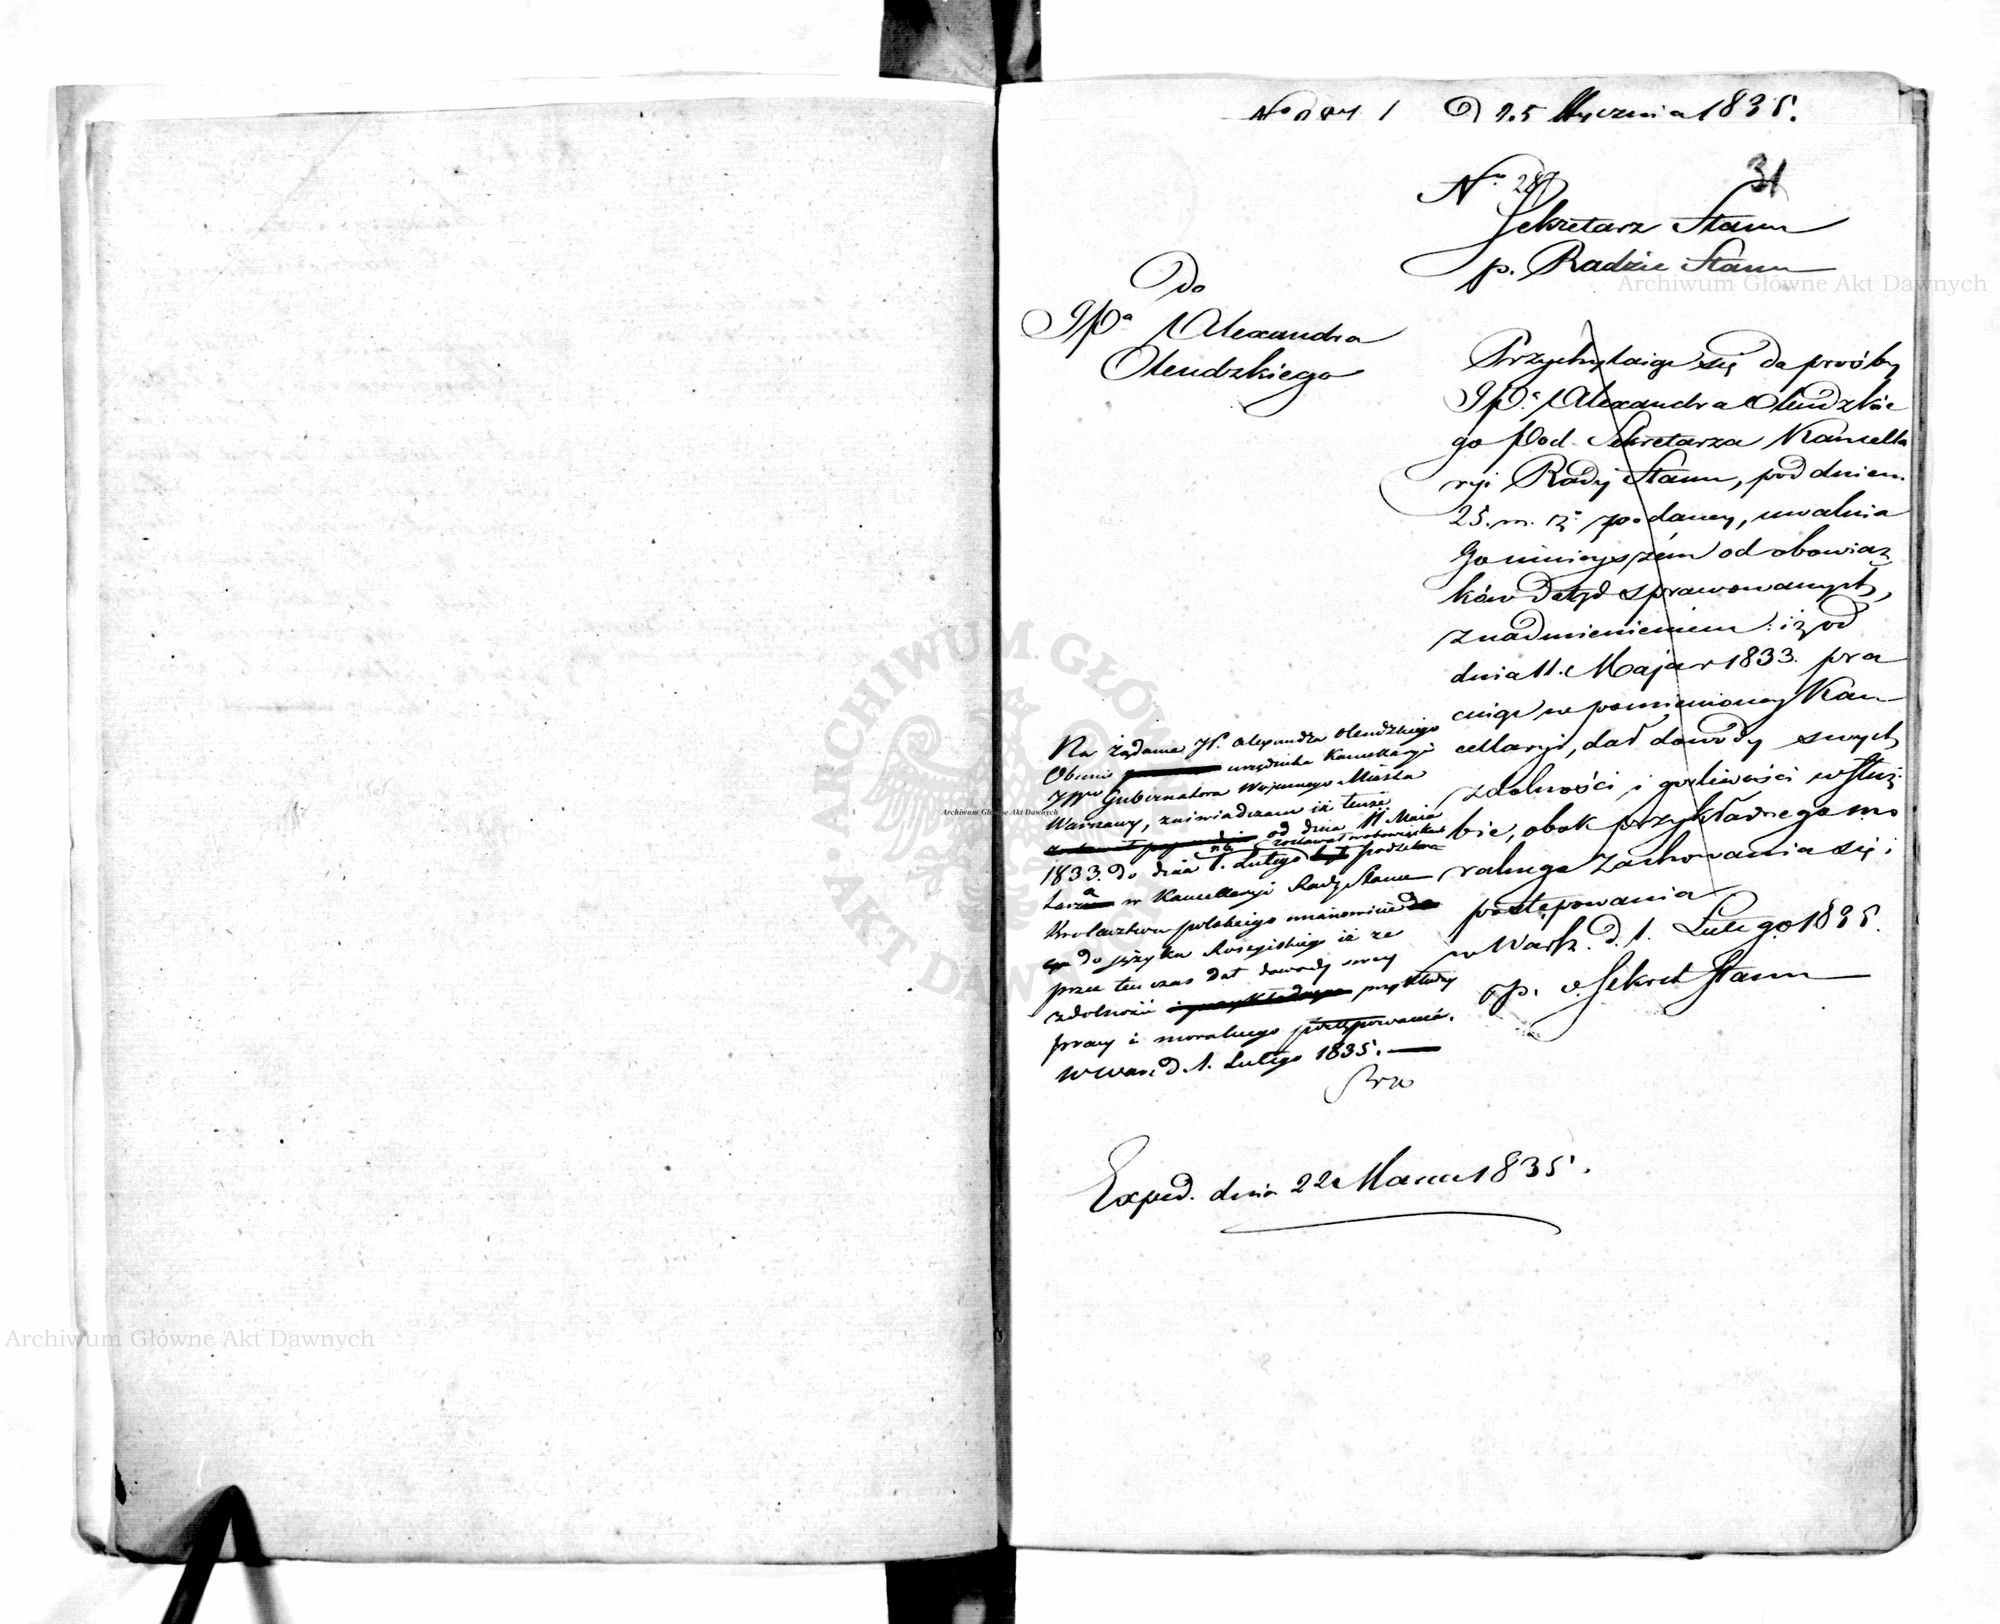 d 25 Stycznia 1835.
31
No 287
Sekretarz Stanu
p. Radzie Stanu
Do
JPa Alexandra
Olendzkiego
Przychylaiąc się do prośby
JPa Alexandra Olendzkie
go Pod-Sekretarza Kancella
ryi Rady Stanu, pod dniem
25. m. z. podaney, uwalnia
Go ninieyszém od obowiąz
ków dotąd sprawowanych,
z nadmienieniem: iż od
dnia 11. Maja r 1833. pra
cuiąc w pomienioney Kan
cellaryi, dał dowody swych
zdolności i gorliwości w służ
bie, obok przykładnego mo
ralnego zachowania się i
postępowania
w Warsz. d. 1. Lutego 1835.
Sekret Stanu
Na żądanie JP. Alexandra Olendzkiego
Obecnie urzędnika Kancellaryi
JW Gubernatora Wojennego Miasta
Warszawy, zaświadczam iż tenże
od dnia 11 Maia
zostawał w obowiązkach
1833. do dnia 1. Lutego Podsekre
tarza w Kancellaryi Rady Stanu
Królestwa polskiego mianowicie
do języka Rossyiskiego iż ze
przez ten czas dał dowody swey
zdolności przykładney
pracy i moralnego postępowania.
w Warsz. d. 1. Lutego 1835.
Exped. dnia 22 Marca 1835.
Archiwum Główne Akt Dawnych
Archiwum Główne Akt Dawnych
Archiwum Główne Akt Dawnych
ARCHIWUM GŁÓWNE
AKT DAWNYCH